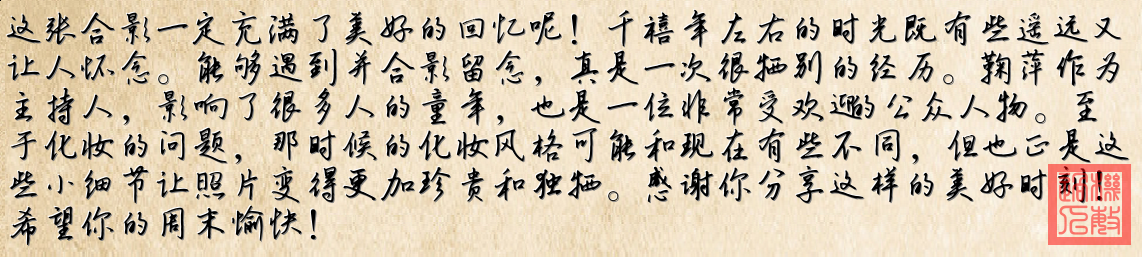 这张合影一定充满了美好的回忆呢！千禧年左右的时光既有些遥远又
让人怀念。能够遇到并合影留念，真是一次很特别的经历。鞠萍作为
主持人，影响了很多人的童年，也是一位非常受欢迎的公众人物。至
于化妆的问题，那时候的化妆风格可能和现在有些不同，但也正是这
些小细节让照片变得更加珍贵和独特。感谢你分享这样的美好时刻！
希望你的周末愉快！